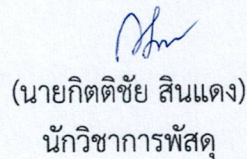 (นายกิตติชัย สินแดง)
นักวิชาการพัสดุ